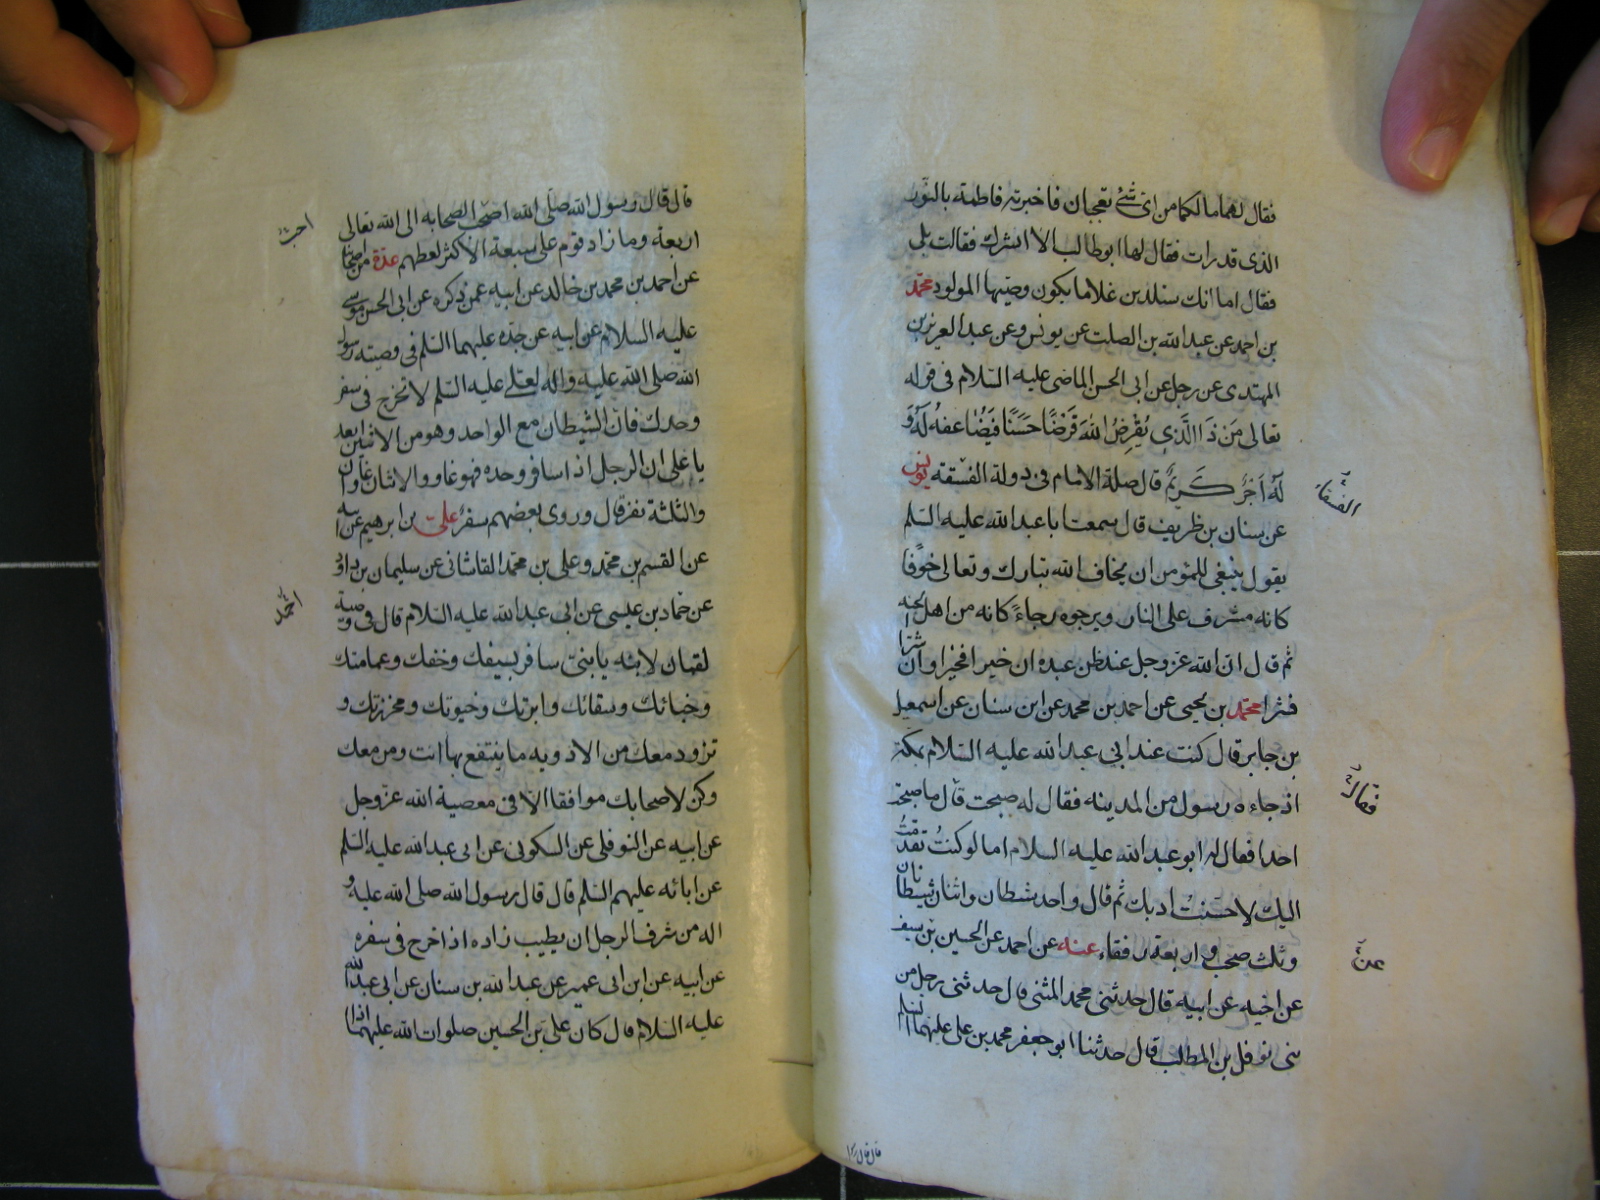 فقال لهما مالكما من اى شئ تعجبان فاخبرته فاطمة بالنور
الذى قد رات فقال لها ابو طالب الا ابشرك فقالت بلى
فقال اما انك ستلدين غلاما يكون وصيّها المولود محمّد
بن احمد عن عبد الله بن الصلت عن يونس وعن عبد العزيز بن
المهتدى عن رجل عن ابى الحسن الماضى عليه السّلام فى قوله
تعالى مَنْ ذَا الَّذِى يُقْرِضُ اللهَ قَرْضًا حَسَنًا فَيُضَاعِفَهُ لَهُ وَ
لَهُ اَجْرٌ كَرِيمٌ قال صلة الامام فى دولة الفسقة يونس
الفسّاق
عن سنان بن طريف قال سمعت ابا عبد الله عليه السّلم
يقول ينبغى للمؤمن ان يخاف الله تبارك وتعالى خوفًا
كانه مشرف على النار ويرجوه رجاءً كانه من اهل الجنه
ثم قال انّ الله عزّ وجل عند ظن عبده ان خيرا فخيرا وان شرّا
فشرا محمّد بن يحيى عن احمد بن محمد عن ابن سنان عن اسمعيل
بن جابر قال كنت عند ابى عبد الله عليه السّلام بمكة
اذ جاءه رسول من المدينه فقال له من صحبت قال ما صحبت
فقال
احدا فقال له ابو عبد الله عليه السلام اما لو كنتُ تقدّمتُ
اليك لاحسنتُ ادبك ثم قال واحد شيطان واثنان شيطانان
وثلث صحب واربعة رفقاء عنه عن احمد عن الحسين بن سيف
عن
عن اخيه عن ابيه قال حدثنى محمد المثنى قال حدثنى رجل من
بنى نوفل بن المطلب قال حدثنا ابو جعفر محمد بن على عليهما السّلم
قال قال رسول
قال قال رسول الله صلّى الله احبّ الصحابه الى الله تعالى
احبّ
اربعة وما زاد قوم على سبعة الا كثر لغطهم عدّة من اصحابنا
عن احمد بن محمد بن خالد عن ابيه عمن ذكره عن ابى الحسن موسى
عليه السلام عن ابيه عن جدّه عليهما السّلم فى وصية رسول
الله صلى الله عليه واله لعلى عليه السّلم لا تخرج فى سفر
وحدك فانّ الشيطان مع الواحد وهو من الاثنين ابعد
يا على ان الرجل اذا سافر وحده فهو غاو والاثنان غاويان
والثلثة نفر قال وروى بعضهم سفرٌ علىّ بن ابرهيم عن ابيه
عن القسم بن محمّد وعلى بن محمّد القاشانى عن سليمان بن داود
عن حمّاد بن عيسى عن ابى عبد الله عليه السّلام قال فى وصية
لقمان لابنه يا بنىّ سافر بسيفك وخفك وعمامتك
وخبائك وسقائك وابرتك وخيوتك ومخرزتك و
تزود معك من الادويه ما ينتفع بها انت ومن معك
وكن لاصحابك موافقا الّا فى معصية الله عزّ وجل
عن ابيه عن النوفلى عن السكونى عن ابى عبد الله عليه السّلم
عن ابائه عليهم السّلم قال قال رسول الله صلى الله عليه و
اله من شرف الرجل ان يطيب زاده اذا خرج فى سفره
عن ابيه عن ابن ابى عمير عن عبد الله بن سنان عن ابى عبد الله
عليه السّلام قال كان على بن الحسين صلوات الله عليهما اذا